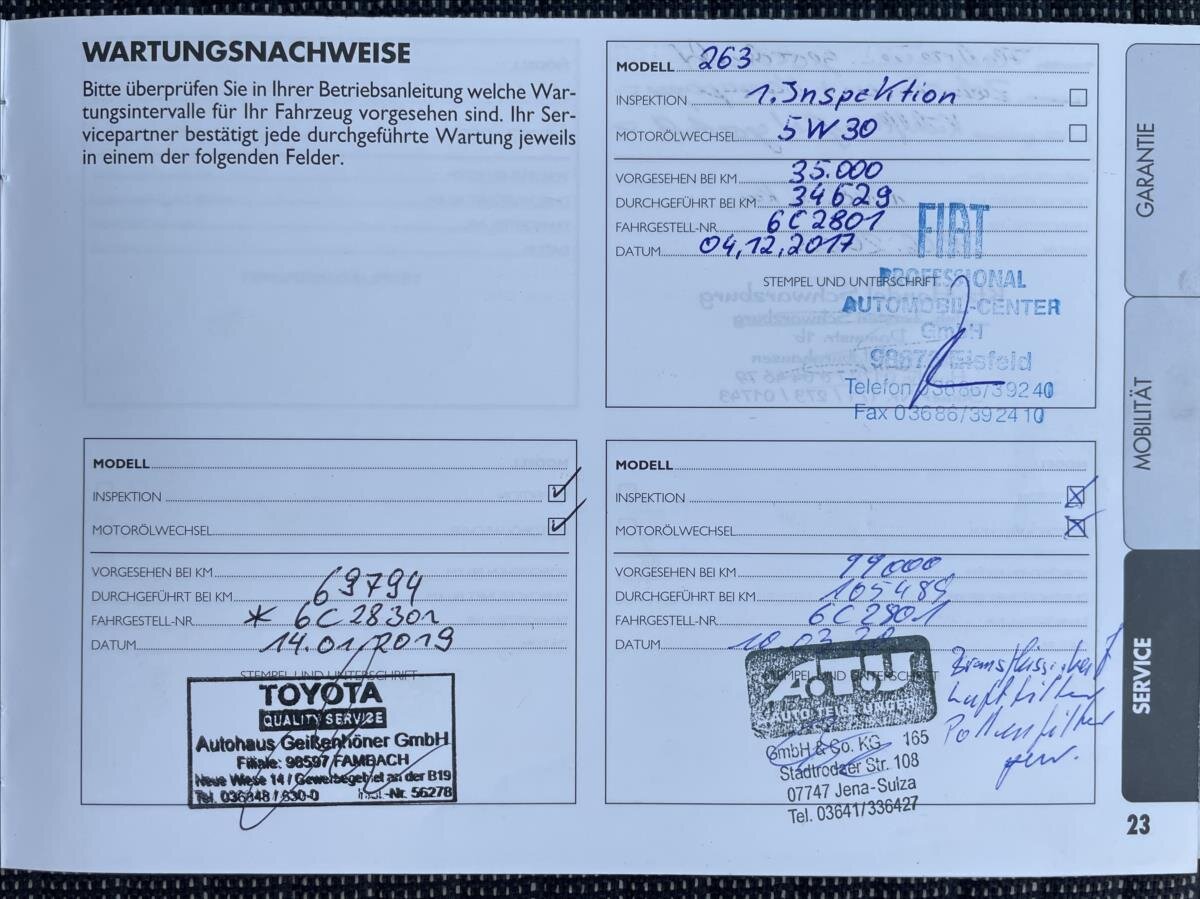 WARTUNGSNACHWEISE
Bitte überprüfen Sie in Ihrer Betriebsanleitung welche War-
tungsintervalle für Ihr Fahrzeug vorgesehen sind. Ihr Ser-
vicepartner bestätigt jede durchgeführte Wartung jeweils
in einem der folgenden Felder.
MODELL 263
INSPEKTION 1. Inspektion
MOTORÖLWECHSEL 5W30
VORGESEHEN BEI KM 35.000
DURCHGEFÜHRT BEI KM 34629
FAHRGESTELL-NR. 6C2801
DATUM 04,12,2017
STEMPEL UND UNTERSCHRIFT
FIAT
PROFESSIONAL
AUTOMOBIL-CENTER
GmbH
98673 Eisfeld
Telefon 03686/39240
Fax 03686/392410
MODELL
INSPEKTION
MOTORÖLWECHSEL
VORGESEHEN BEI KM
DURCHGEFÜHRT BEI KM 69794
FAHRGESTELL-NR. * 6C28301
DATUM 14.01.2019
STEMPEL UND UNTERSCHRIFT
TOYOTA
QUALITY SERVICE
Autohaus Geißenhöner GmbH
Filiale: 98597 FAMBACH
Neue Wiese 14 / Gewerbegebiet an der B19
Tel. 036848 / 830-0 Inst.-Nr. 56278
MODELL
INSPEKTION
MOTORÖLWECHSEL
VORGESEHEN BEI KM 99000
DURCHGEFÜHRT BEI KM 105489
FAHRGESTELL-NR. 6C2801
DATUM 10.03.20
STEMPEL UND UNTERSCHRIFT
A.T.U
AUTO-TEILE-UNGER
GmbH & Co. KG 165
Stadtrodaer Str. 108
07747 Jena-Sulza
Tel. 03641/336427
Bremsflüssigkeit
Luftfilter
Pollenfilter
gew.
GARANTIE
MOBILITÄT
SERVICE
23